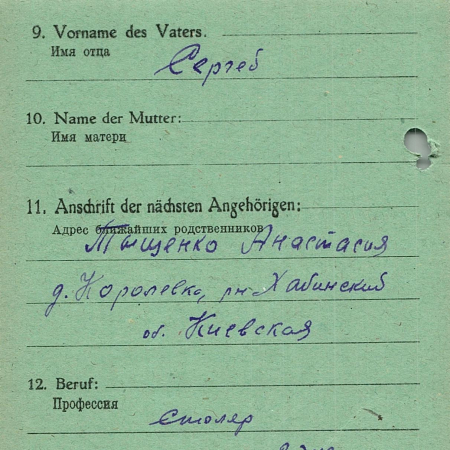 9. Vorname des Vaters.
Имя отца
Сергей
10. Name der Mutter:
Имя матери
11. Anschrift der nächsten Angehörigen:
Адрес ближайших родственников
Тыщенко Анастасия
д. Королевка, рн Хабинский
об. Киевская
12. Beruf:
Профессия
Столяр